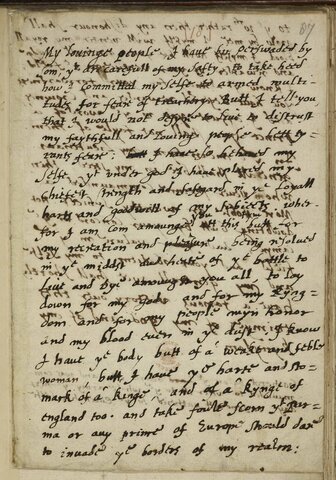 87
My loving people I have bin perswaded by
som yt are carefull of my safty to take heed
how I committed my selfe to armed multi
tudes for fear of treachery. butt I tell you
that I would not desyre to live to distrust
my faithfull and loving people lett ty-
rants feare: I have so behaved my
selfe yt under god I have placed my
chifest strength and safgard in ye loyall
harts and goodwill of my subiects wher
for I am com amoungst you att this butt for
my recreation and pleasure being resolved
in ye middst and heate of ye battle to
live and dye amoungst you all to lay
down for my god and for my kyng-
dom and for my people myn honor
and my blood even in ye dust I know
I have ye body butt of a weake and feble
woman butt I have ye harte and sto-
mack of a kinge and of a kynge of
england too. and take foule scorn yt Par-
ma or any prince of Europe should dare
to invade ye borders of my realm: